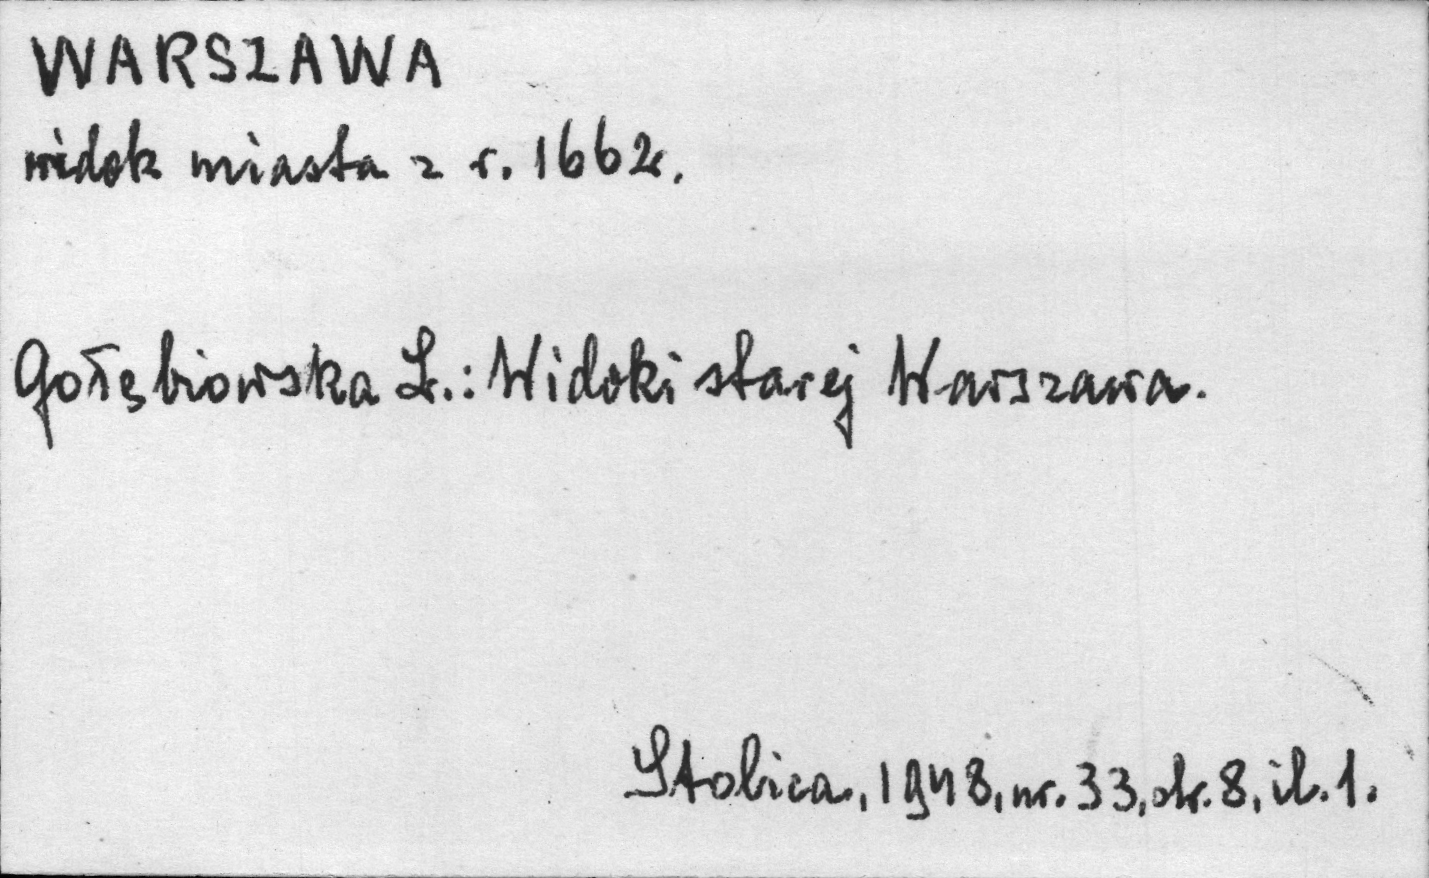 WARSZAWA
widok miasta z r. 1662.
Gołębiowska Ł.: Widoki starej Warszawa.
Stolica, 1948, nr. 33, str. 8, il. 1.